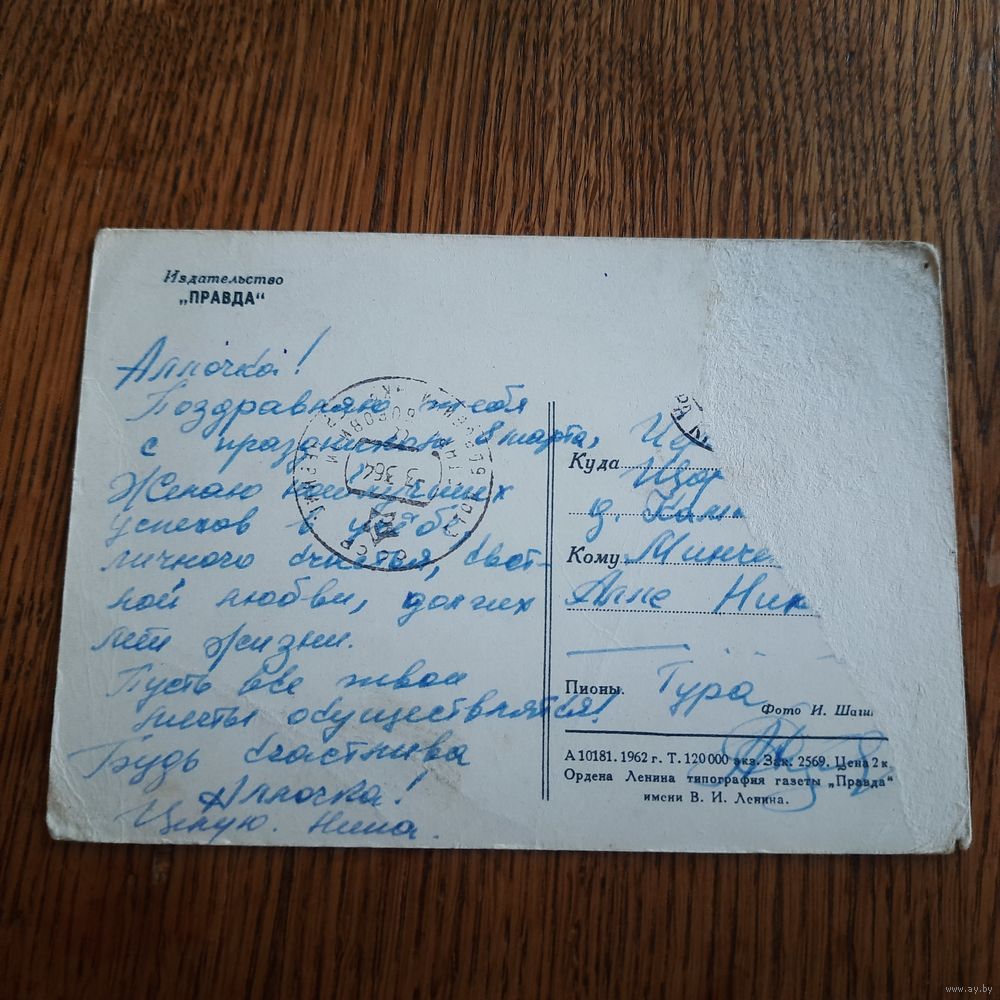 Издательство
„ПРАВДА“
Аллочка!
Поздравляю тебя
с праздником 8 марта,
Желаю наилучших
успехов в учёбе
личного счастья, 
ной любви, долгих
лет жизни.
Пусть все твои
мечты осуществлятся!
Будь счастлива
Аллочка!
Целую. Нина.
СССР
3364
Куда
д. Кам
Кому Минче
Алле Ник
Пионы.
Тура
Фото И. Шаги
А 10181. 1962 г. Т. 120 000 экз. Зак. 2569. Цена 2 к.
Ордена Ленина типография газеты „Правда“
имени В. И. Ленина.
www.ay.by